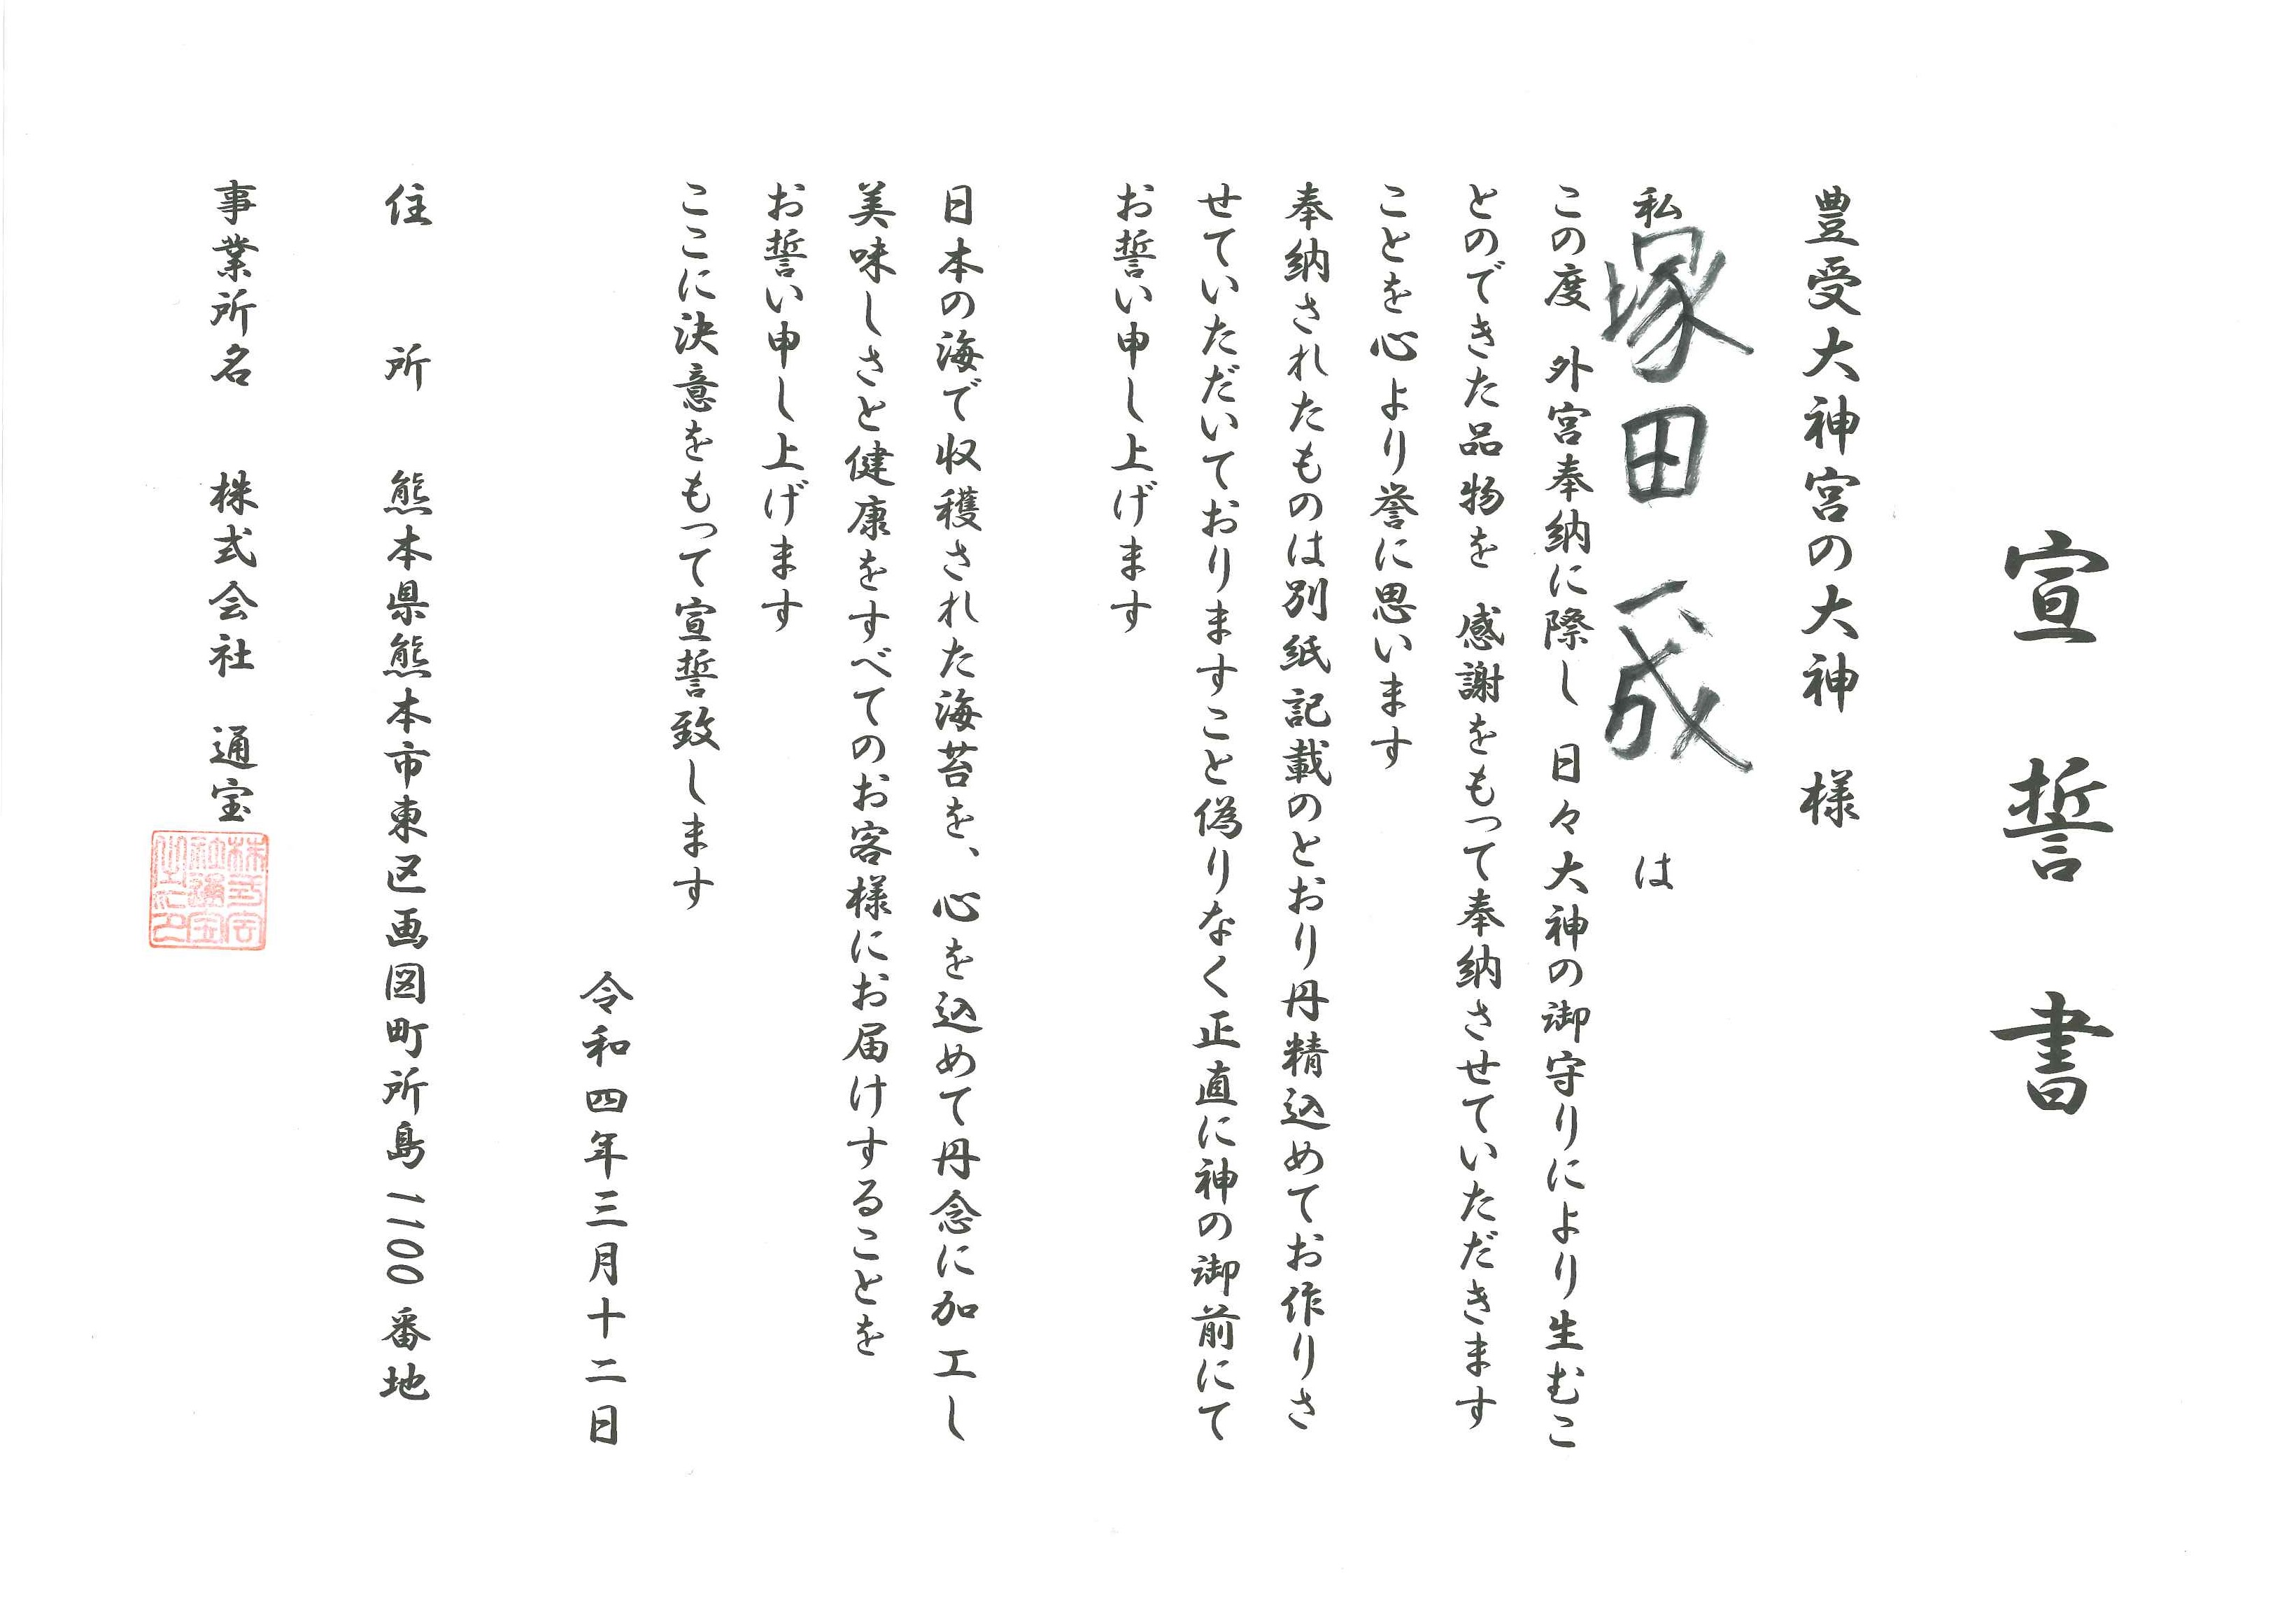 宣誓書
豊受大神宮の大神 様
私 塚田 一成 は
この度 外宮奉納に際し 日々大神の御守りにより生むこ
とのできた品物を 感謝をもって奉納させていただきます
ことを心より誉に思います
奉納されたものは別紙記載のとおり丹精込めてお作りさ
せていただいておりますこと偽りなく正直に神の御前にて
お誓い申し上げます
日本の海で収穫された海苔を、心を込めて丹念に加工し
美味しさと健康をすべてのお客様にお届けすることを
お誓い申し上げます
ここに決意をもって宣誓致します
令和四年三月十二日
住所 熊本県熊本市東区画図町所島1100番地
事業所名 株式会社 通宝
株式会社通宝之印